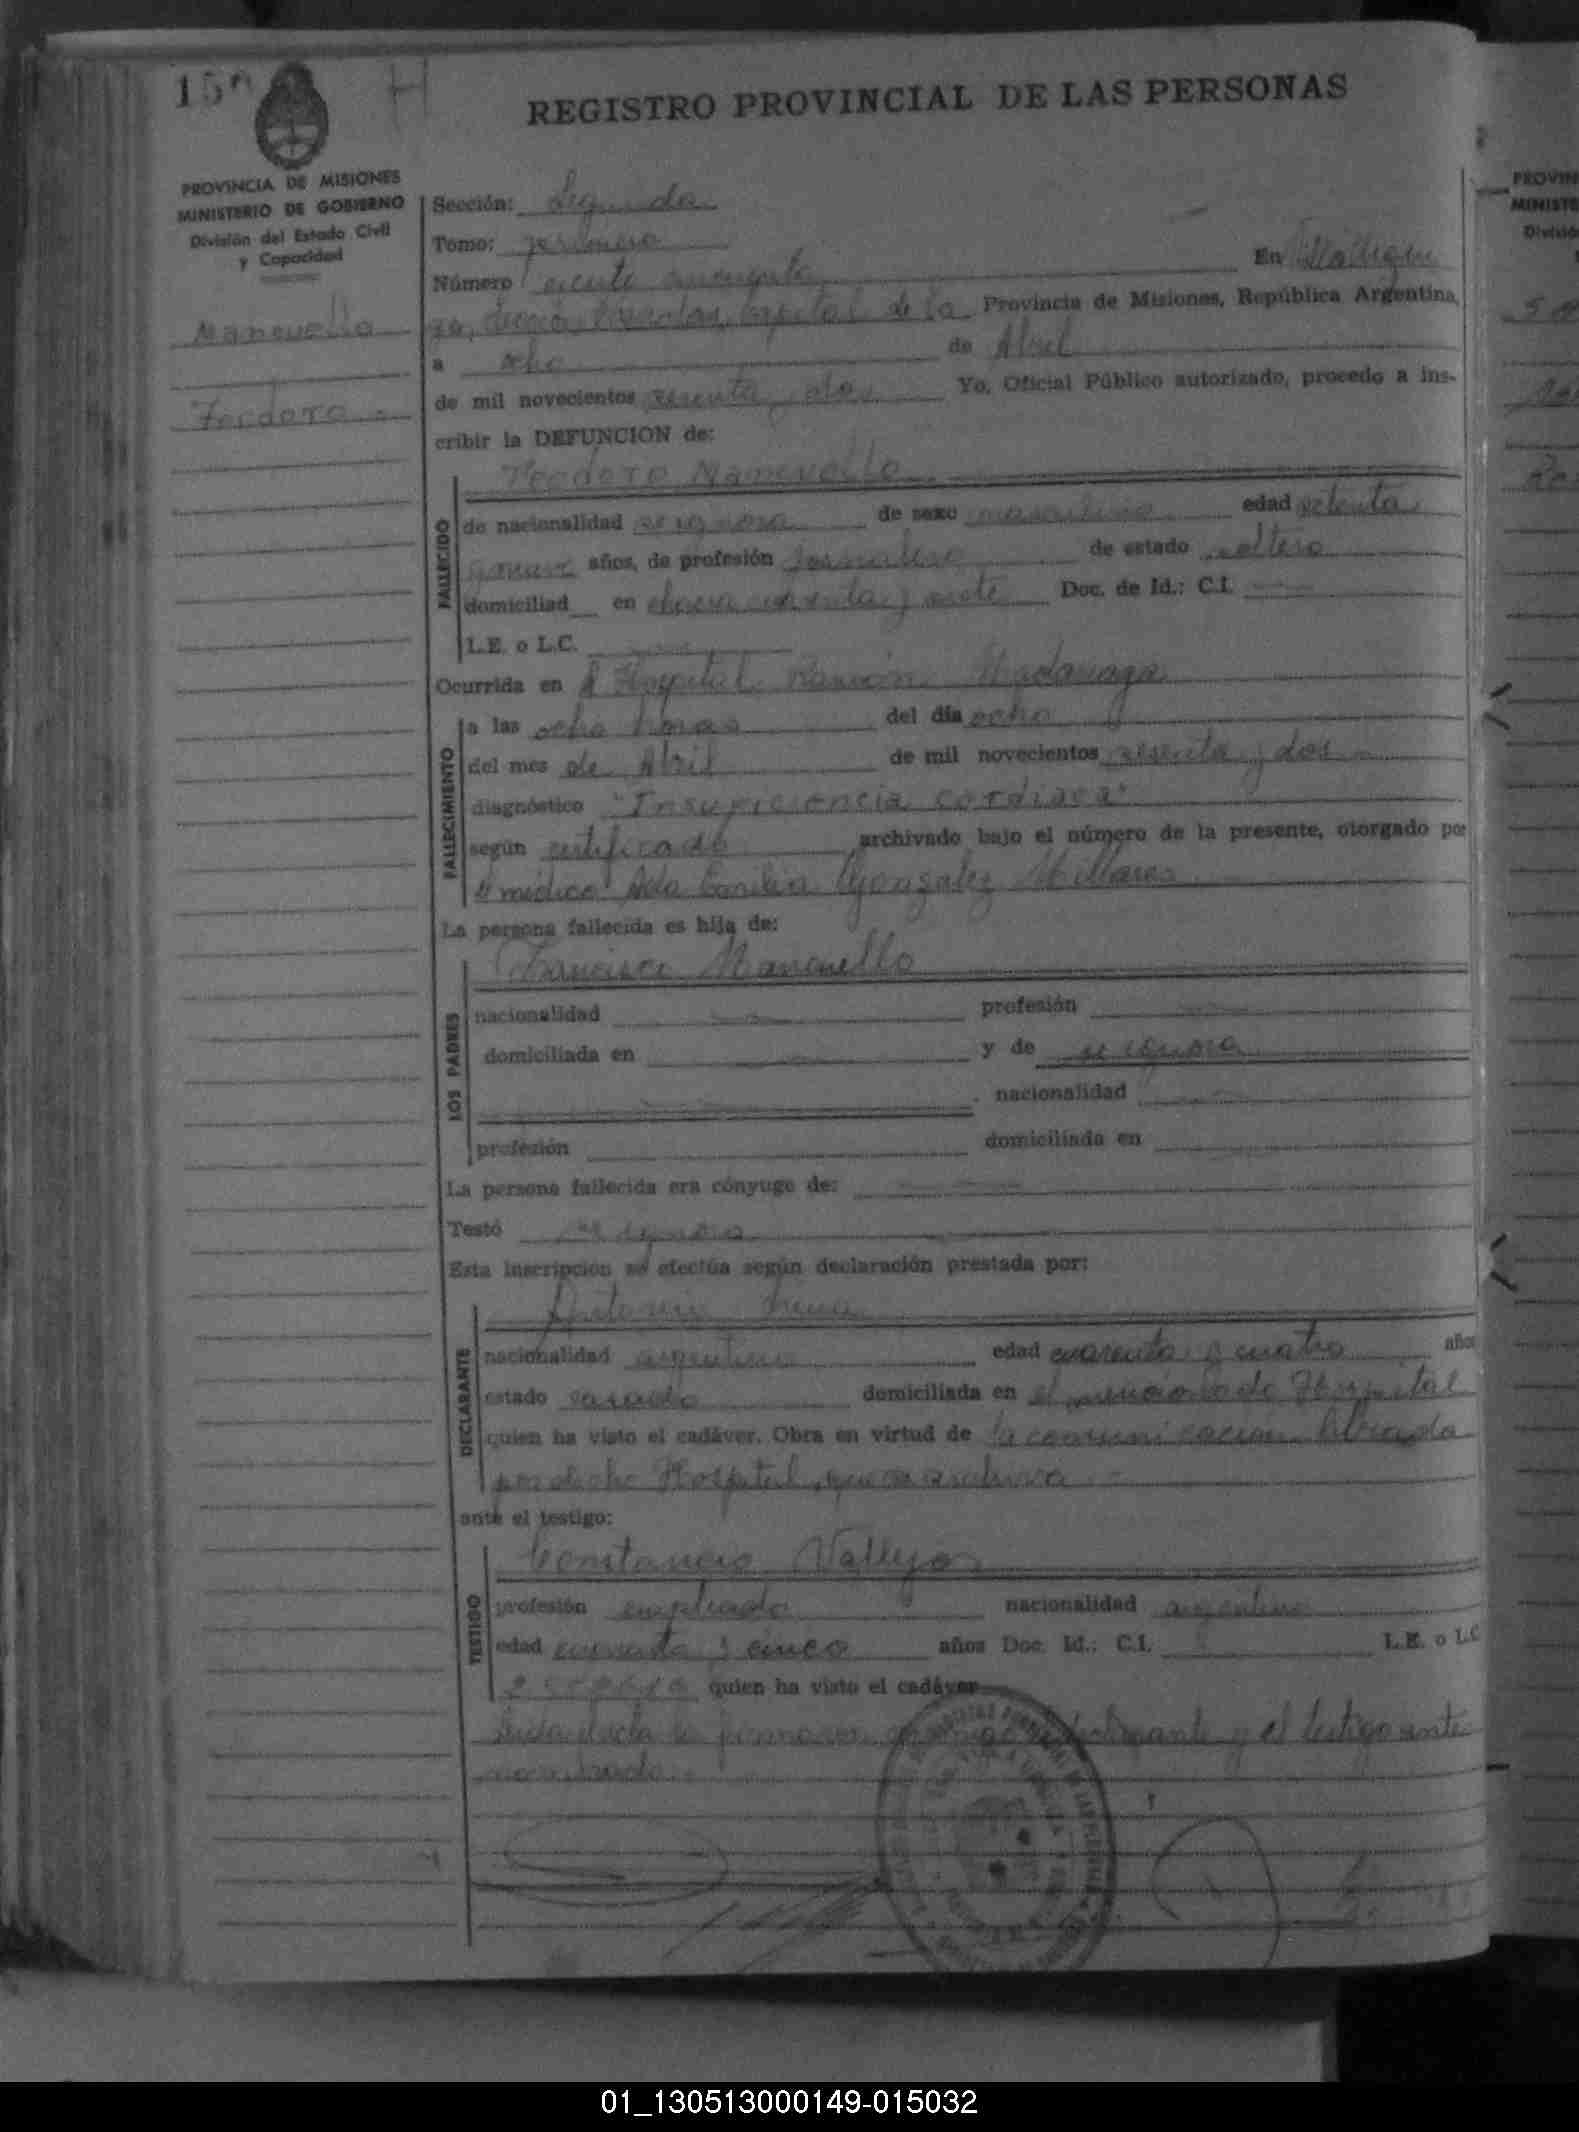 150 H
REGISTRO PROVINCIAL DE LAS PERSONAS
PROVINCIA DE MISIONES
MINISTERIO DE GOBIERNO
División del Estado Civil
y Capacidad
Manevella
Teodoro
Sección: Segunda
Tomo: primero
Número ciento cincuenta En
capital de la Provincia de Misiones, República Argentina,
a ocho de Abril
de mil novecientos sesenta y dos Yo, Oficial Público autorizado, procedo a ins-
cribir la DEFUNCION de:
FALLECIDO
Teodoro Manevella
de nacionalidad se ignora de sexo masculino edad setenta
años, de profesión Jornalero de estado soltero
domiciliad en chacra y siete Doc. de Id.: C.I.
L.E. o L.C.
Ocurrida en el Hospital Ramón Madariaga
FALLECIMIENTO
a las ocho horas del día ocho
del mes de Abril de mil novecientos sesenta y dos
diagnóstico "Insuficiencia cardiaca"
según certificado archivado bajo el número de la presente, otorgado por
el médico Gonzalez Millares
La persona fallecida es hija de:
LOS PADRES
Francisco Manevella
nacionalidad profesión
domiciliada en y de se ignora
nacionalidad
profesión domiciliada en
La persona fallecida era cónyuge de:
Testó se ignora
Esta inscripción se efectúa según declaración prestada por:
DECLARANTE
Antonio Luna
nacionalidad argentino edad cuarenta y cuatro años
estado casado domiciliada en el mencionado Hospital
quien ha visto el cadáver. Obra en virtud de la comunicación librada
por dicho Hospital, que se archiva
ante el testigo:
TESTIGO
Constancio Vallejos
profesión empleado nacionalidad argentino
edad cuarenta y cinco años Doc. Id.: C.I. L.E. o L.C
quien ha visto el cadáver
Leida el acta la firmaron conmigo el declarante y el testigo ante
mencionado
PROVIN
MINISTE
División
01_130513000149-015032